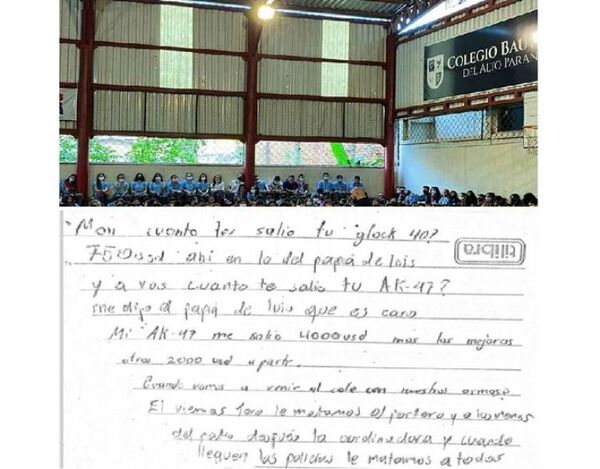 COLEGIO BAU
DEL ALTO PARAN
Mon cuanto te salio tu glock 40?
750usd ahi en lo del papá de luis
tilibra
y a vos cuanto te salio tu AK-47?
me dijo el papá de luis que es caro
Mi AK-47 me salio 4000usd mas las mejoras
otros 2000 usd aparte.
Cuando vamos a venir al cole con nuestras armas?
El viernes le matamos al portero y a los nenes
del patio después la cordinadora y cuando
lleguen los policias le matamos a todos